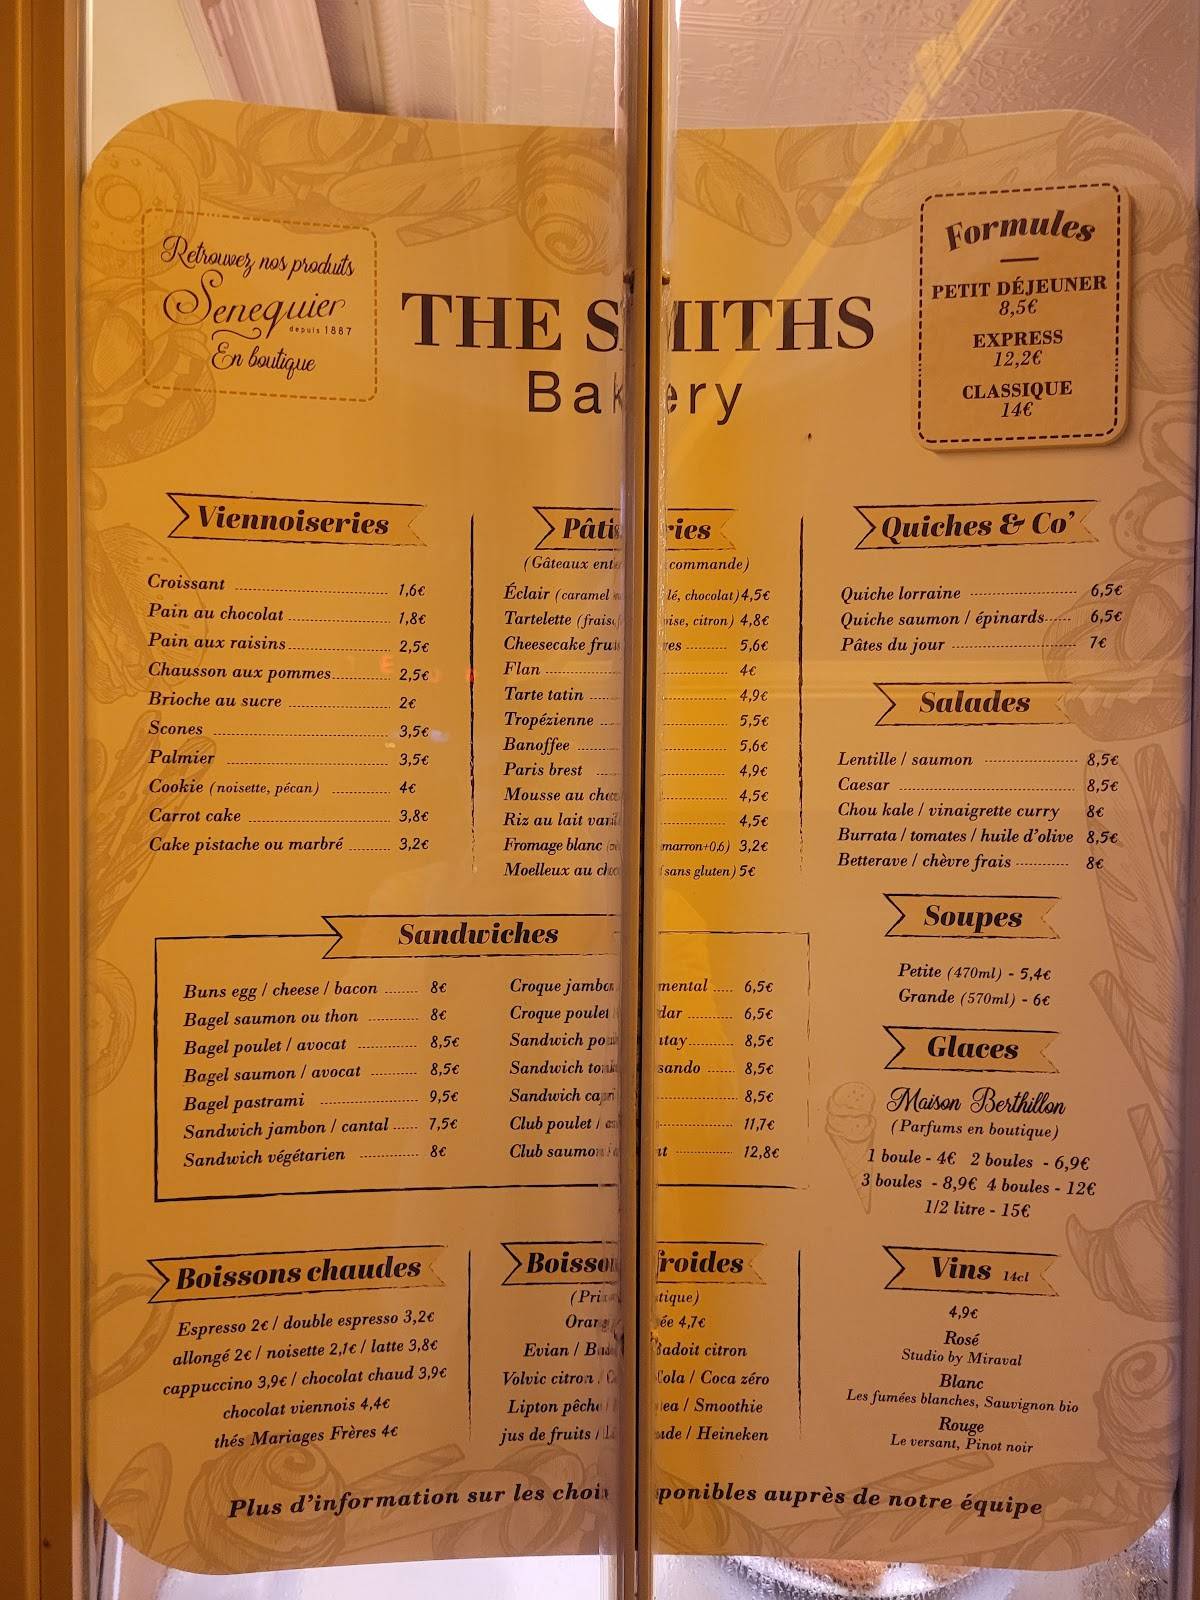 Retrouvez nos produits
Senequier
depuis 1887
En boutique
THE SMITHS
Bakery
Formules
PETIT DÉJEUNER
8,5€
EXPRESS
12,2€
CLASSIQUE
14€
Viennoiseries
Croissant 1,6€
Pain au chocolat 1,8€
Pain aux raisins 2,5€
Chausson aux pommes 2,5€
Brioche au sucre 2€
Scones 3,5€
Palmier 3,5€
Cookie (noisette, pécan) 4€
Carrot cake 3,8€
Cake pistache ou marbré 3,2€
Pâtisseries
(Gâteaux commande)
Éclair (caramel chocolat) 4,5€
Tartelette citron) 4,8€
Cheesecake 5,6€
Flan 4€
Tarte tatin 4,9€
Tropézienne 5,5€
Banoffee 5,6€
Paris brest 4,9€
Mousse au 4,5€
Riz au lait 4,5€
Fromage blanc marron+0,6) 3,2€
Moelleux au (sans gluten) 5€
Quiches & Co'
Quiche lorraine 6,5€
Quiche saumon / épinards 6,5€
Pâtes du jour 7€
Salades
Lentille / saumon 8,5€
Caesar 8,5€
Chou kale / vinaigrette curry 8€
Burrata / tomates / huile d'olive 8,5€
Betterave / chèvre frais 8€
Soupes
Petite (470ml) - 5,4€
Grande (570ml) - 6€
Glaces
Maison Berthillon
(Parfums en boutique)
1 boule - 4€ 2 boules - 6,9€
3 boules - 8,9€ 4 boules - 12€
1/2 litre - 15€
Sandwiches
Buns egg / cheese / bacon 8€
Bagel saumon ou thon 8€
Bagel poulet / avocat 8,5€
Bagel saumon / avocat 8,5€
Bagel pastrami 9,5€
Sandwich jambon / cantal 7,5€
Sandwich végétarien 8€
Croque jambon 6,5€
Croque poulet 6,5€
Sandwich 8,5€
Sandwich 8,5€
Sandwich 8,5€
Club poulet / 11,7€
Club saumon 12,8€
Boissons chaudes
Espresso 2€ / double espresso 3,2€
allongé 2€ / noisette 2,1€ / latte 3,8€
cappuccino 3,9€ / chocolat chaud 3,9€
chocolat viennois 4,4€
thés Mariages Frères 4€
Boissons froides
4,7€
Evian / Badoit citron
Volvic citron / Cola / Coca zéro
Lipton pêche / Smoothie
jus de fruits / Heineken
Vins 14cl
4,9€
Rosé
Studio by Miraval
Blanc
Les fumées blanches, Sauvignon bio
Rouge
Le versant, Pinot noir
Plus d'information sur les choix disponibles auprès de notre équipe